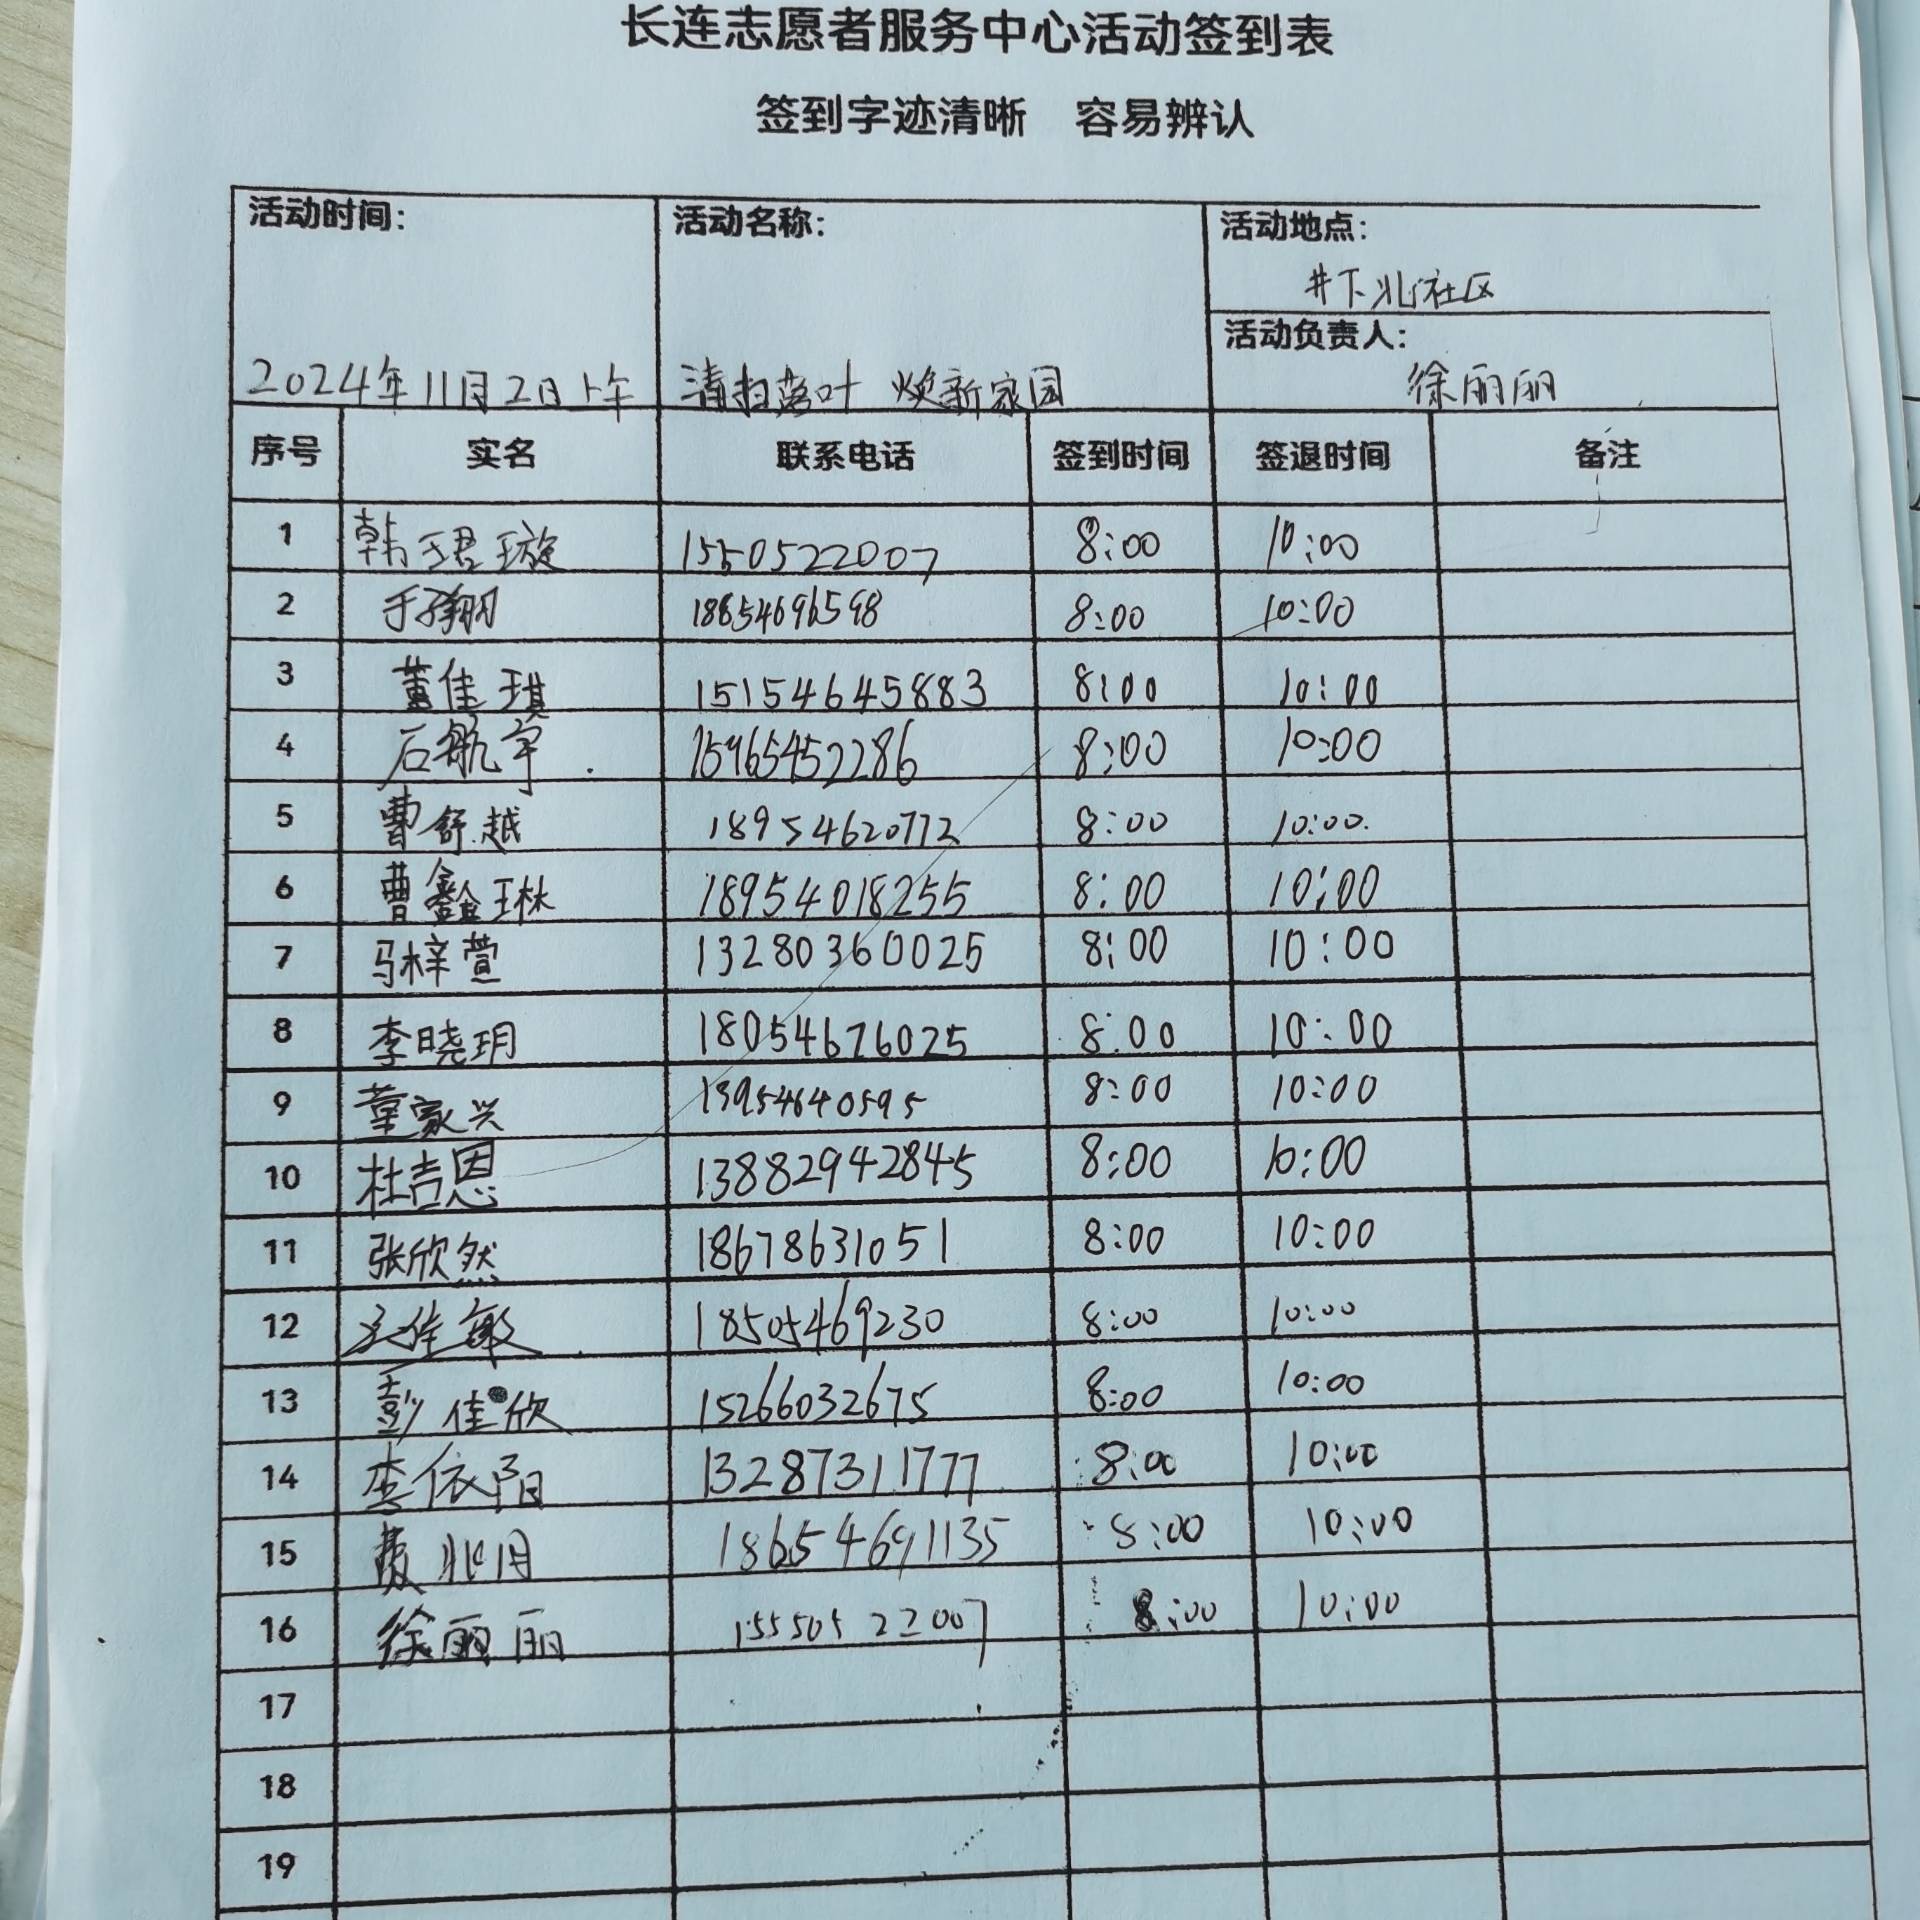 长连志愿者服务中心活动签到表
签到字迹清晰 容易辨认
活动时间: 活动名称: 活动地点:
井下北社区
活动负责人:
2024年11月2日上午 清扫落叶 焕新家园 徐丽丽
序号 实名 联系电话 签到时间 签退时间 备注
1 韩珺璇 1550522007 8:00 10:00
2 于孜翔 18854696598 8:00 10:00
3 董佳琪 15154645883 8:00 10:00
4 石航宇 15965452286 8:00 10:00
5 曹舒越 18954620772 8:00 10:00
6 曹鑫琳 18954018255 8:00 10:00
7 马梓萱 13280360025 8:00 10:00
8 李晓玥 18054676025 8:00 10:00
9 董家兴 13954640595 8:00 10:00
10 杜吉恩 13882942845 8:00 10:00
11 张欣然 18678631051 8:00 10:00
12 18505469230 8:00 10:00
13 彭佳欣 15266032675 8:00 10:00
14 李依阳 13287311777 8:00 10:00
15 18654691135 8:00 10:00
16 徐丽丽 15550522007 8:00 10:00
17
18
19